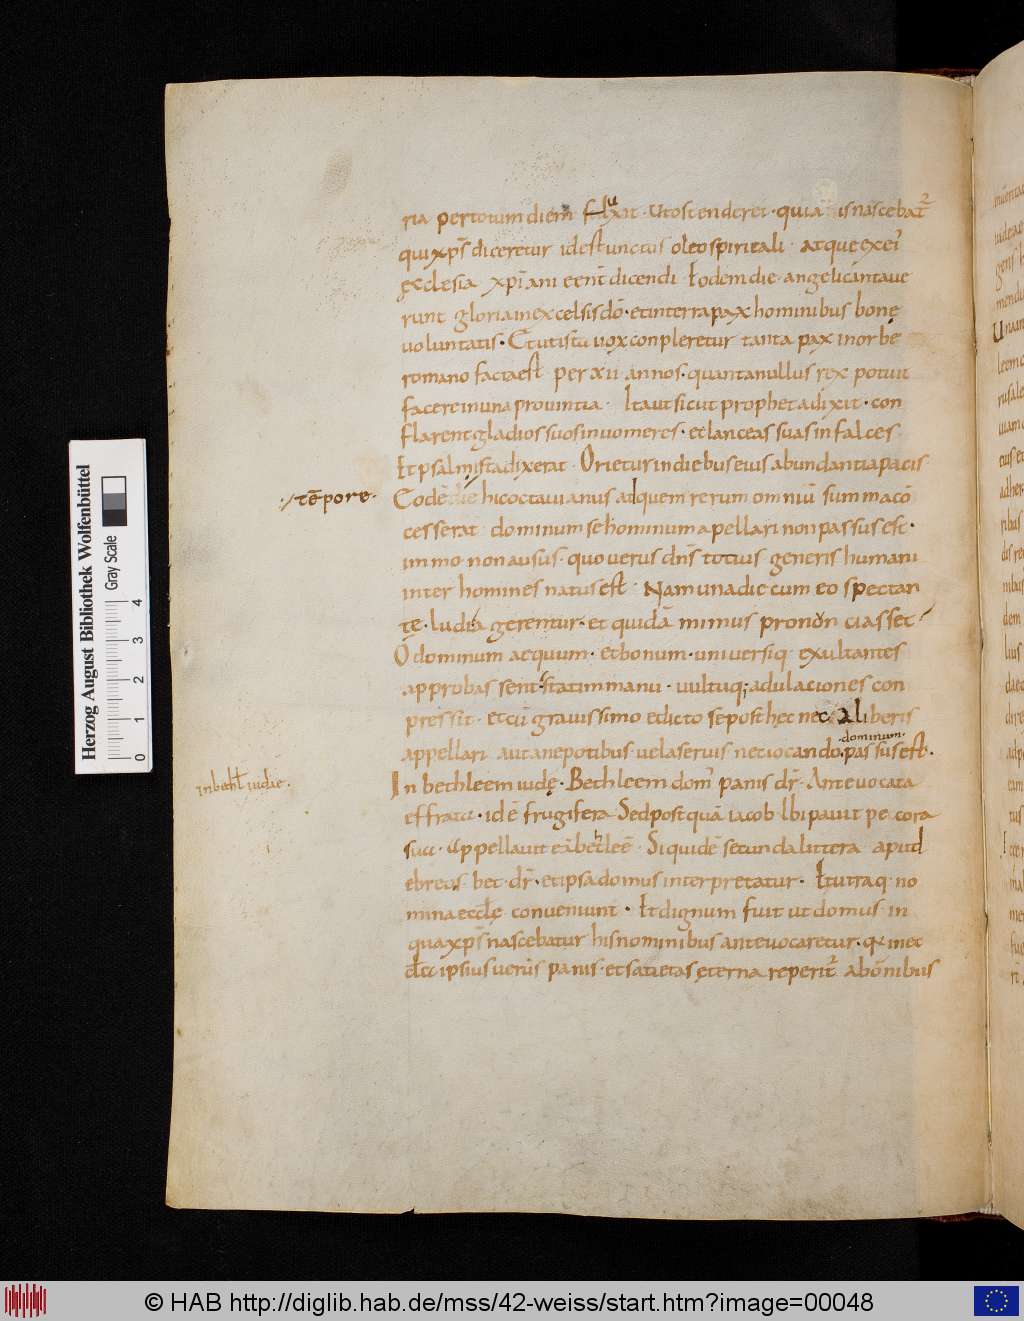 ria per totum diem fluxit · Ut ostenderet · quia is nascebat᷑
qui xp̄s diceretur id est unctus oleo spiritali · atque ex ei᷑
ecclesia xp̄iani eent̄ dicendi · Eodem die angeli cantave
runt gloria in excelsis dō · et in terra pax hominibus bonę
voluntatis · Et ut ista vox conpleretur tanta pax in orbe
romano facta est per xii annos · quanta nullus rex potuit
facere in una provintia · Ita ut sicut propheta dixit · con
flarent gladios suos in vomeres · et lanceas suas in falces ·
Et psalmista dixerat · Orietur in diebus eius abundantia pacis ·
·/ tēpore ·
Eodē die hic octavianus ad quem rerum omniū summa cō
cesserat dominum se hominum apellari non passus est ·
immo non ausus · quo verus dn̄s totius generis humani
inter homines natus est · Nam una die cum eo spectan
te · ludia gerentur · et quidā mimus pronun ciasset
O dominum aequum · et bonum · universiq exultantes
approbassent · statim manu · vultuq; adulaciones con
pressit · et cū gravissimo edicto se post hęc nec a liberis
dominum ·
appellari aut a nepotibus vel a servis nec iocando passus est ·
in behł iudae ·
In bethleem iudę · Bethleem dom᷑ panis dr̄ · Ante vocata
effrata · id ē frugifera Sed postquā iacob ibi pavit pecora
sua · Appellavit eā bethleē · Siquidē secunda littera apud
ebreos bet · dr̄ · et ipsa domus interpretatur · Et utraq · no
mina eccłę conveniunt · Et dignum fuit ut domus in
qua xp̄s nascebatur his nominibus ante vocaretur · q in ec
cła ipsius verus panis · et satietas ęterna reperit᷑ ab omnibus
Herzog August Bibliothek Wolfenbüttel
Gray Scale
0 1 2 3 4
© HAB http://diglib.hab.de/mss/42-weiss/start.htm?image=00048